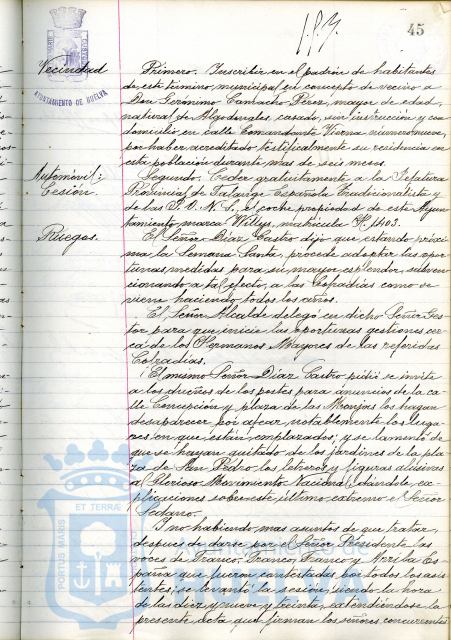 45
AYUNTAMIENTO DE HUELVA
Vecindad
Primero. Inscribir en el padrón de habitantes
de este término municipal en concepto de vecino a
Don Gerónimo Camacho Pérez, mayor de edad,
natural de Algodonales, casado, sin instrucción y con
domicilio en calle Comandante Vierna número nueve,
por haber acreditado testificalmente su residencia en
esta población durante mas de seis meses.
Automóvil:
Cesión.
Segundo. Ceder gratuitamente a la Jefatura
Provincial de Falange Española Tradicionalista y
de las J. O. N. S., el coche propiedad de este Ayun
tamiento, marca Willys, matrícula H. 1403.
Ruegos.
El Señor Díaz Castro dijo que estando próxi
ma la Semana Santa, procede adoptar las opor
tunas medidas para su mayor esplendor, subven
cionando a tal efecto, a las Cofradías como se
viene haciendo todos los años.
El Señor Alcalde delegó en dicho Señor Ges
tor para que inicie las oportunas gestiones cer
ca de los Hermanos Mayores de las referidas
Cofradías.
El mismo Señor Díaz Castro pidió se invite
a los dueños de los postes para anuncios de la ca
lle Concepción y plaza de las Monjas los hagan
desaparecer por afear notablemente los luga
res en que están emplazados; y se lamentó de
que se hayan quitado de los jardines de la pla
za de San Pedro los letreros y figuras alusivas
al Glorioso Movimiento Nacional, dándole ex
plicaciones sobre este último extremo el Señor
Sedano.
Y no habiendo mas asuntos de que tratar,
después de darse por el Señor Presidente las
voces de Franco, Franco, Franco y Arriba Es
paña que fueron contestadas por todos los asis
tentes, se levantó la sesión, siendo la hora
de las diez y nueve y treinta, extendiéndose la
presente acta que firman los señores concurrentes
PORTUS MARIS ET TERRAE
Ayuntamiento de